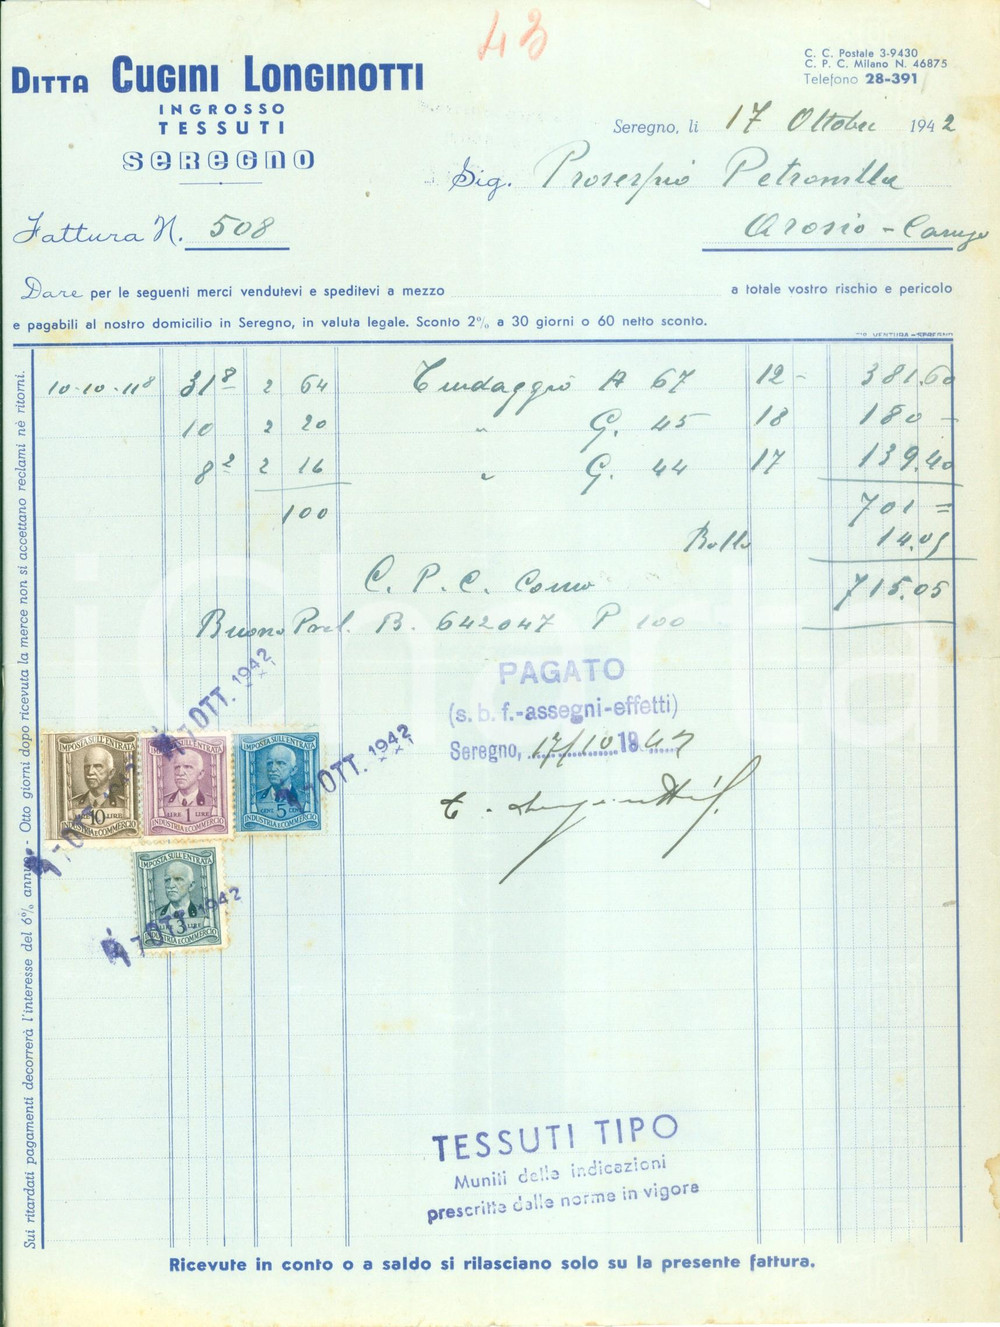 43
DITTA CUGINI LONGINOTTI
INGROSSO
TESSUTI
SEREGNO
C. C. Postale 3-9430
C. P. C. Milano N. 46875
Telefono 28-391
Seregno, li 17 Ottobre 1942
Sig. Proserpio Petronilla
Arosio - Carugo
Fattura N. 508
Dare per le seguenti merci vendutevi e speditevi a mezzo a totale vostro rischio e pericolo
e pagabili al nostro domicilio in Seregno, in valuta legale. Sconto 2% a 30 giorni o 60 netto sconto.
TIP. VENTURA - SEREGNO
10-10-118 31 8 2 64 Tendaggio A 67 12 - 381.60
10 2 20 " G. 45 18 180 -
8 2 2 16 " G. 44 17 139.40
100 701 =
Bollo 14.05
C. P. C. Como 715.05
Buono Prel. B. 642047 P 100
PAGATO
(s. b. f.-assegni-effetti)
Seregno, 17/10 1942
17 OTT. 1942
17 OTT. 1942
17 OTT. 1942
17 OTT. 1942
IMPOSTA SULL'ENTRATA
10 LIRE
INDUSTRIA E COMMERCIO
IMPOSTA SULL'ENTRATA
LIRE 1 LIRE
INDUSTRIA E COMMERCIO
IMPOSTA SULL'ENTRATA
CENT. 5 CENT.
INDUSTRIA E COMMERCIO
IMPOSTA SULL'ENTRATA
LIRE 3 LIRE
INDUSTRIA E COMMERCIO
TESSUTI TIPO
Muniti delle indicazioni
prescritte dalle norme in vigore
Sui ritardati pagamenti decorrerà l'interesse del 6% annuo - Otto giorni dopo ricevuta la merce non si accettano reclami nè ritorni.
Ricevute in conto o a saldo si rilasciano solo su la presente fattura.
iCharta